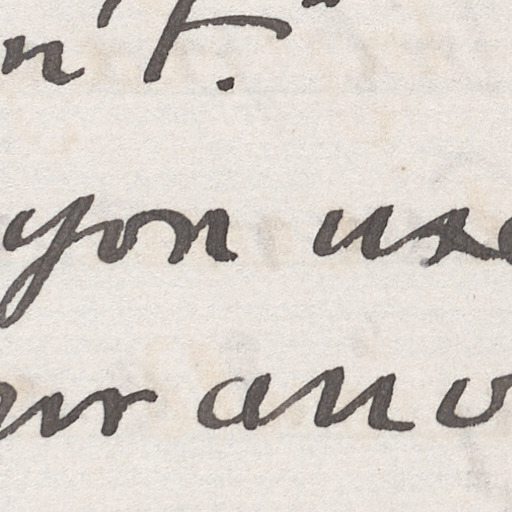 n F.
you use
ur ano